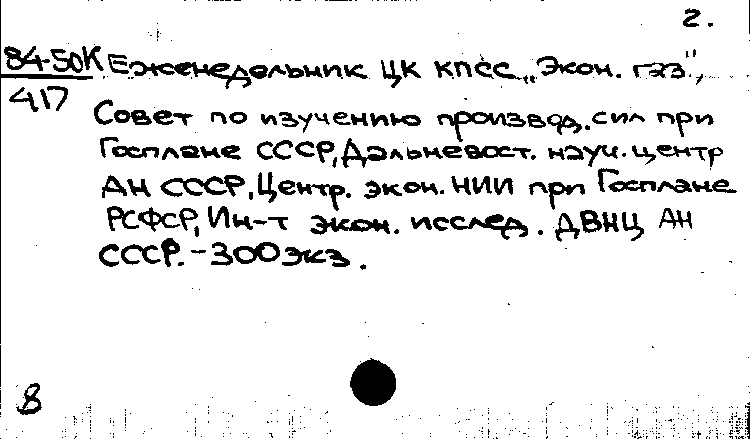 2.
84-50К Еженедельник ЦК КПСС „Экон. газ",
417
Совет по изучению производ. сил при
Госплане СССР, Дальневост. науч. центр
АН СССР, Центр. экон. НИИ при Госплане
РСФСР, Ин-т экон. исслед. ДВНЦ АН
СССР. - 300 экз.
8